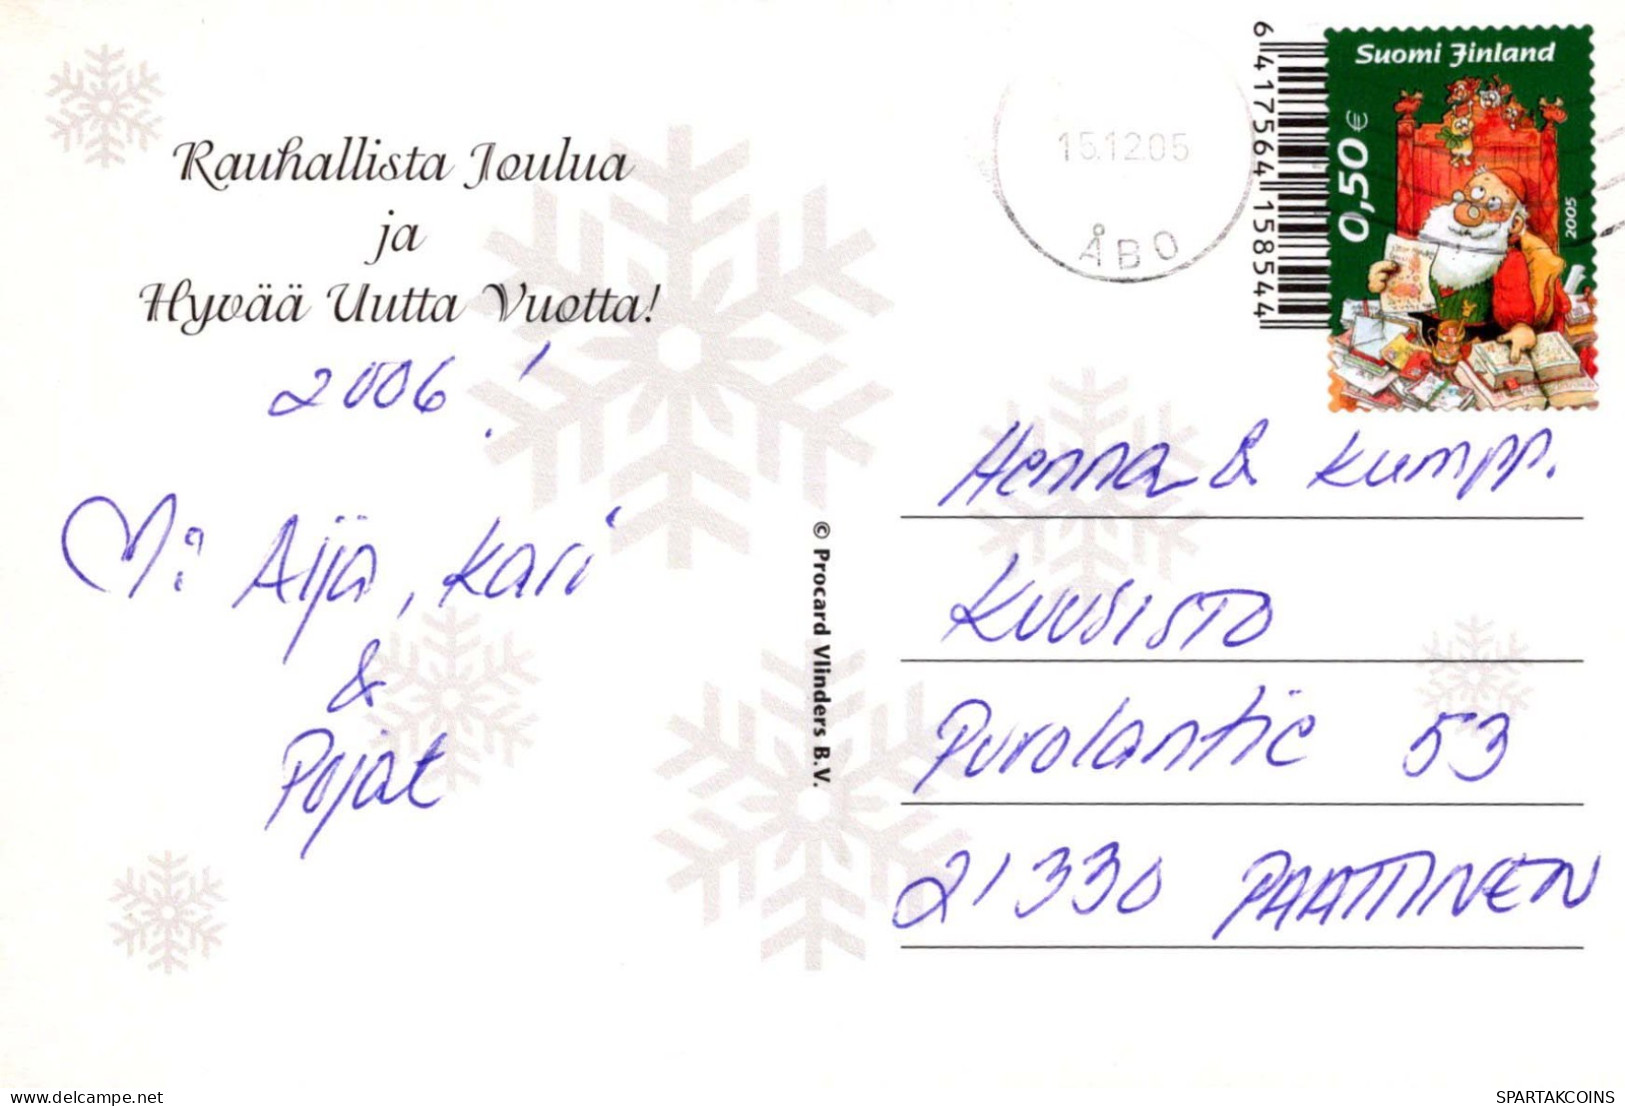 Rauhallista Joulua
ja
Hyvää Uutta Vuotta!
2006!
T: Aija, Kari
&
Pojat
© Procard Vlinders B.V.
15.12.05
ÅBO
6 417564 158544
Suomi Finland
0,50 €
2005
Henna & Kumpp.
KUUSISTO
Purolantie 53
21330 PAATTINEN
delcampe.net
SPARTAKCOINS